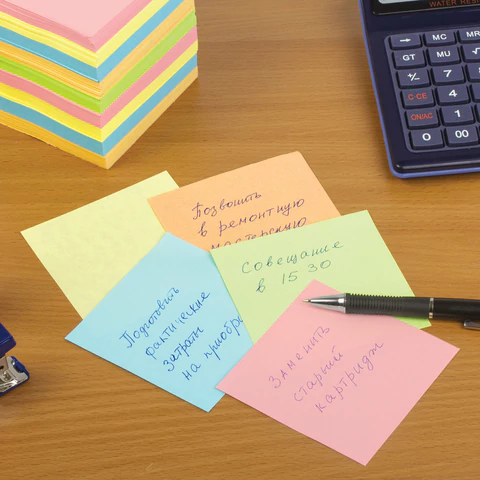 WATER RES
→
MC
MR
GT
MU
√
+/-
7
8
C·CE
4
ON/AC
1
0
00
Позвонить
в ремонтную
мастерскую
Совещание
в 15 30
Подготовить
фактические
затраты
на приобр
Заменить
старый
картридж